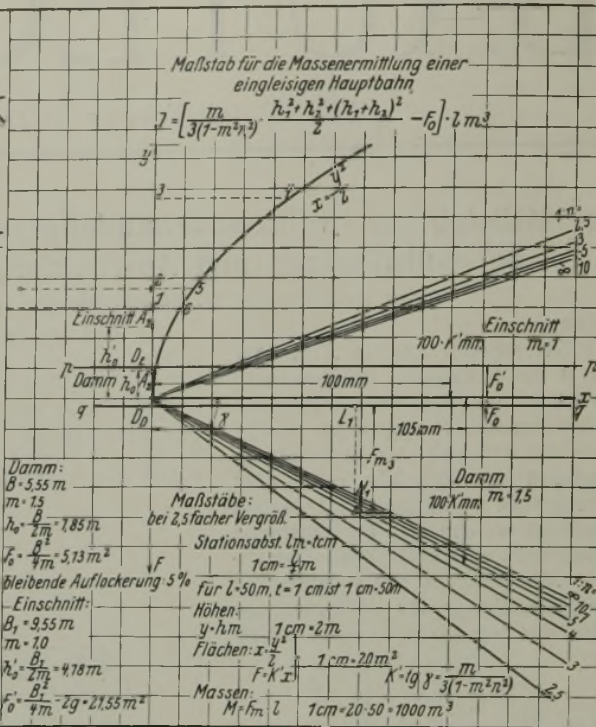 Maßstab für die Massenermittlung einer
eingleisigen Hauptbahn
J = [m/3(1-m²n²) · h₁²+h₂²+(h₁+h₂)²/2 - F₀] · l m³
y
3
y
x = y²/l
1:n=
2,5
3
5
10
∞
2
1
5
6
Einschnitt A₂
h₀' D_E
Einschnitt
100·K'mm m=1
p p
Damm h₀ A₂
100mm
F₀'
x
q D_D γ L₁ F₀ q
105mm
Fm₃
Damm
m=1,5
100·K'mm
V₁
Damm:
B=5,55 m
m=1,5
h₀ = B/2m = 1,85 m
F₀ = B²/4m = 5,13 m²
F
bleibende Auflockerung: 5%
Einschnitt:
B₁ = 9,55 m
m = 1,0
h₀' = B₁/2m = 4,78 m
F₀' = B₁²/4m - 2g = 21,55 m²
Maßstäbe:
bei 2,5facher Vergröß.
Stationsabst. l m=t cm
1cm = l/t m
für l=50m, t=1 cm ist 1 cm=50m
Höhen:
y=h m 1cm=2m
Flächen: x = y²/l
F=K'x 1cm=20m² K'=tg γ = m/3(1-m²n²)
Massen:
M=Fm·l 1cm=20·50=1000 m³
1:n=
∞
10
7
5
4
3
2,5